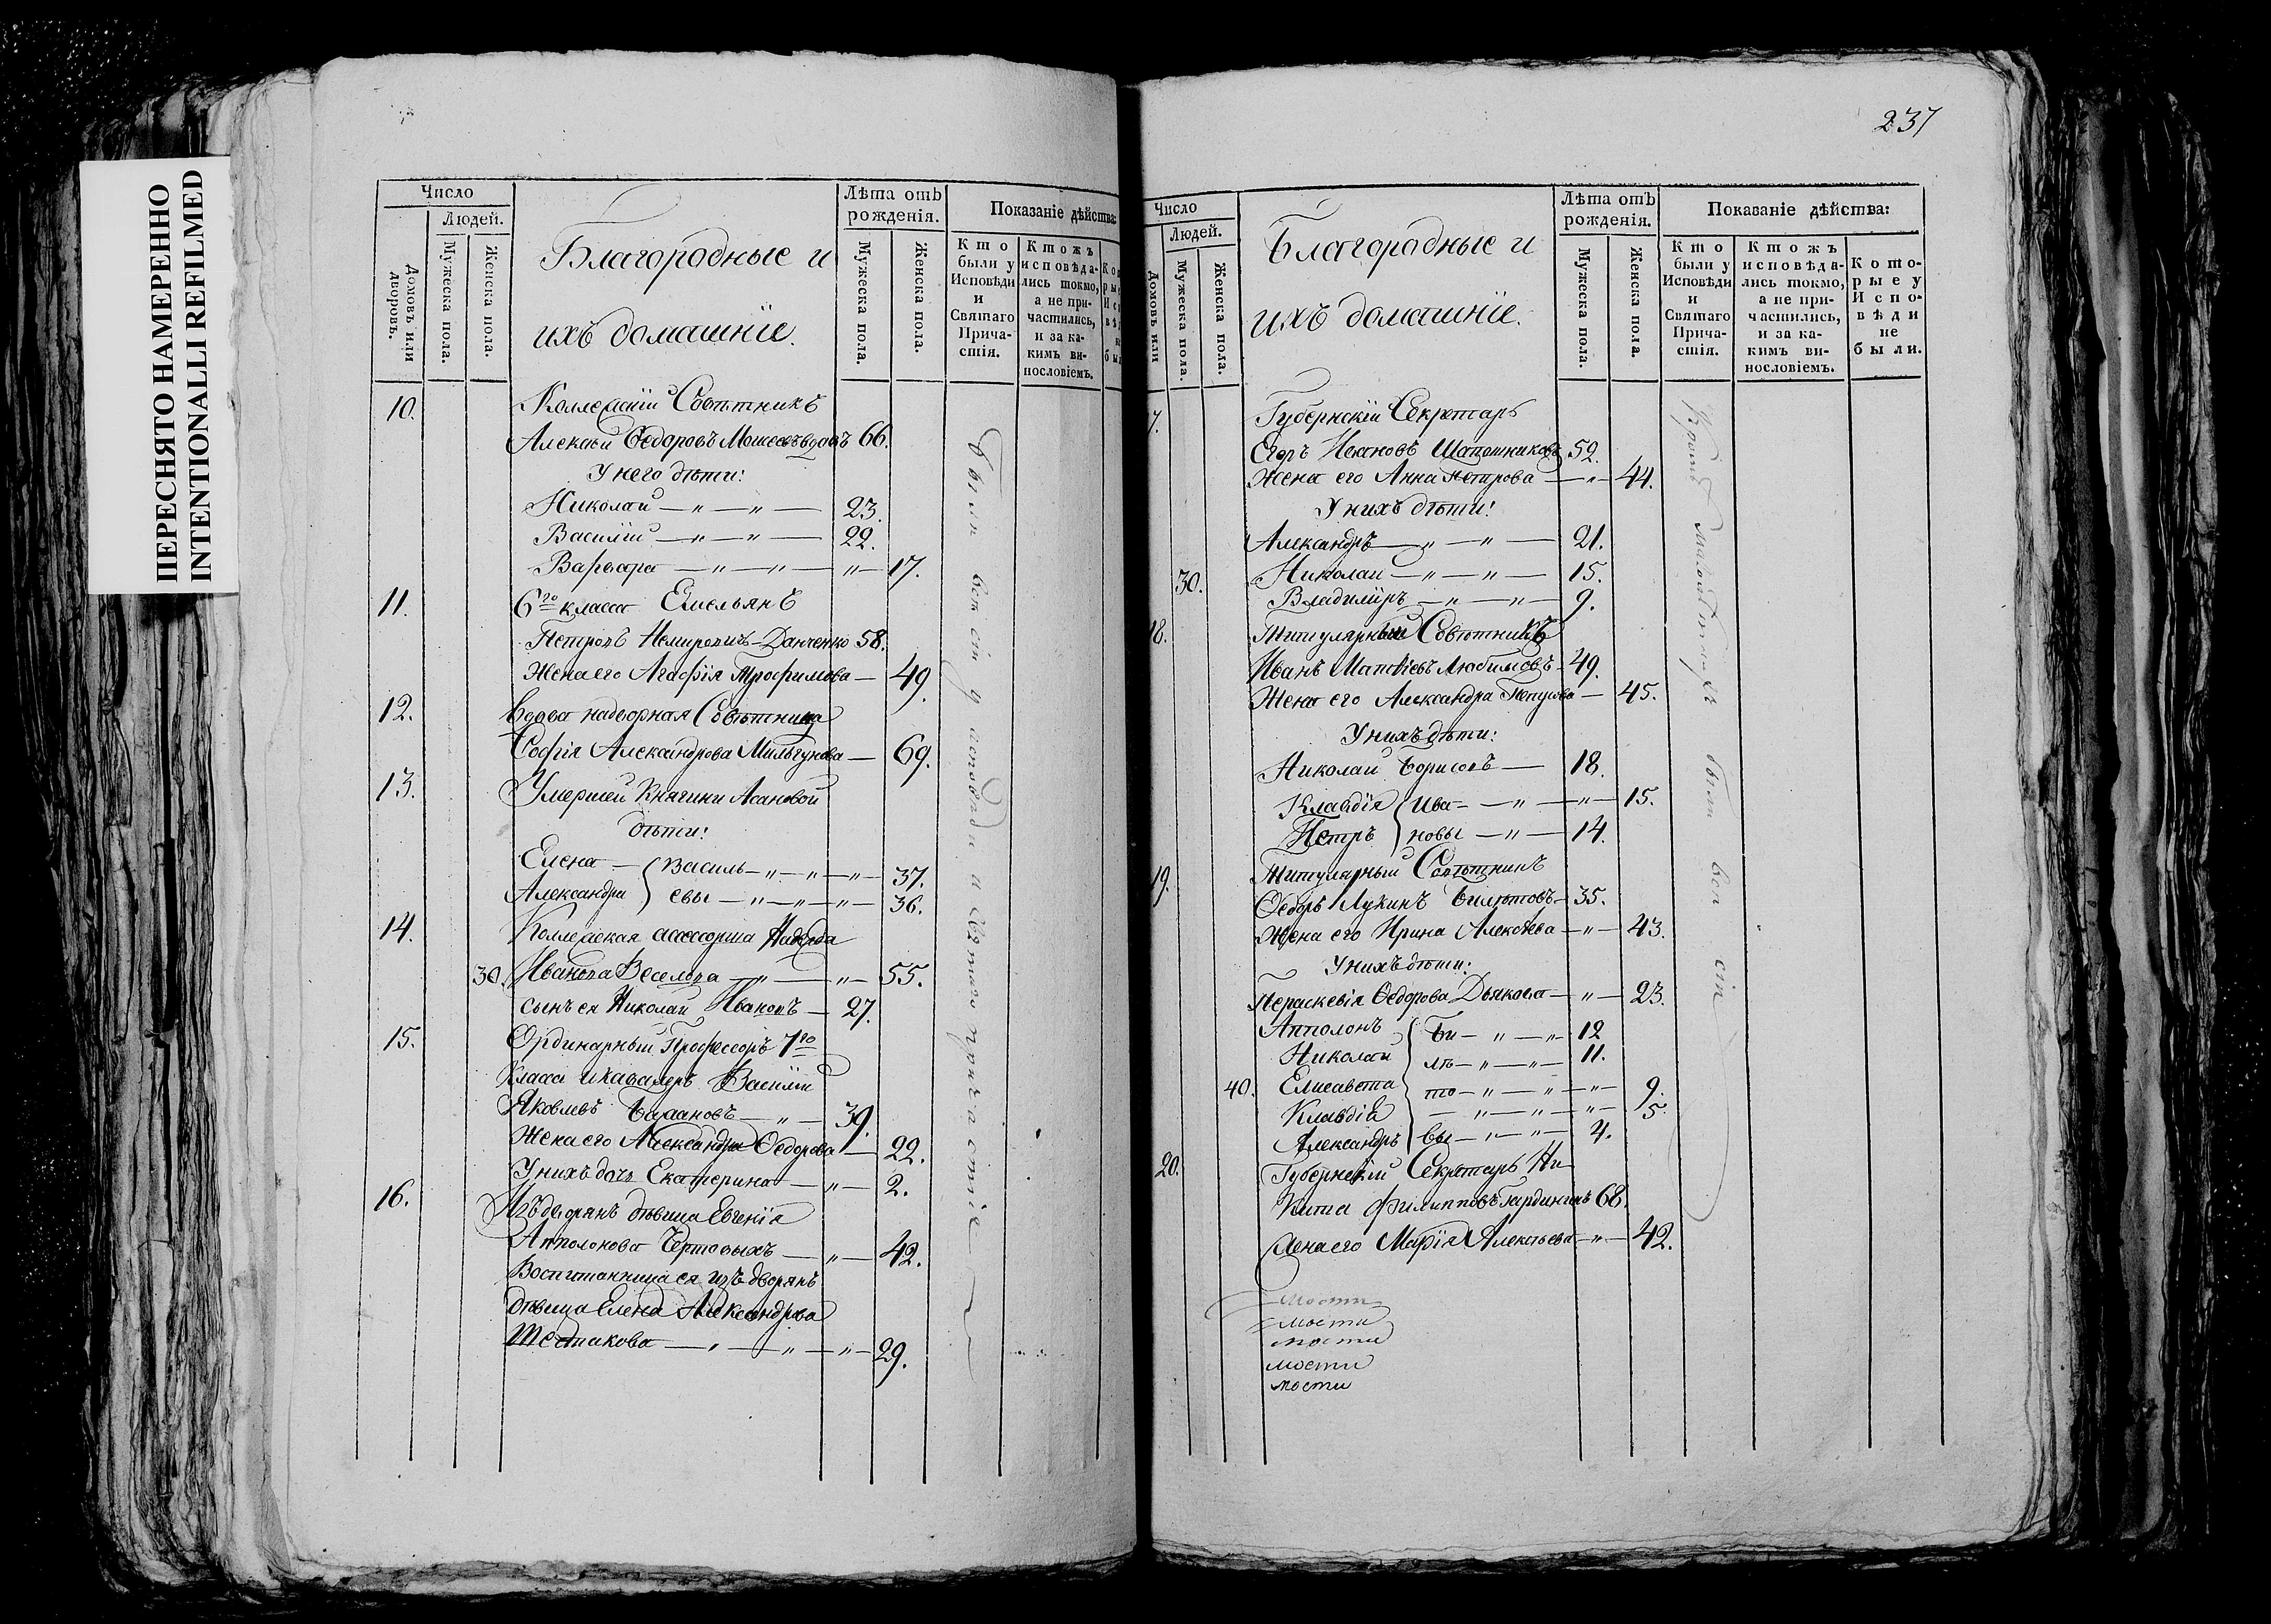 ПЕРЕСНЯТО НАМЕРЕННО
INTENTIONALLI REFILMED
Число
Людей.
Домовъ или дворовъ.
Мужеска пола.
Женска пола.
Благородные и
ихъ домашнїе.
Лѣта отъ рожденія.
Мужеска пола.
Женска пола.
Показаніе дѣйства:
Кто были у Исповѣди и Святаго Прича-стія.
Ктожъ исповѣда-лись токмо, а не при-частились, и за ка-кимъ ви-нословіемъ.
10. Коллежскій Совѣтникъ
Алексѣй Ѳедоровъ 66.
У него дѣти:
Николай — „ — „ — 23.
Василій — „ — „ — 22.
Варвара — „ — „ — „ — 17.
11. 6го класса Емельянъ
Петровъ Немировичъ-Данченко 58.
Жена его Агафія Трофимова — 49.
12. Вдова надворная Совѣтница
Софія Александрова Мильгунова — 69.
13. Умершей Княгини Асановой
дѣти:
Елена — Василь — „ — „ — „ — 37.
Александра евы — „ — „ — „ — 36.
14. Коллежская ассесорша Надежда
30. Иванова Веселова — „ — „ — 55.
сынъ ея Николай Ивановъ — 27.
15. Ординарный Профессоръ 7го
Класса и кавалеръ Василій
Яковлевъ Булановъ — „ — 39.
Жена его Александра Ѳедорова — 22.
У нихъ дочь Екатерина — „ — 2.
16. Изъ дворянъ дѣвица Евгенія
Апполонова Чертовыхъ — „ — 42.
Воспитанница ея изъ дворянъ
дѣвица Елена Александрова
Шестакова — „ — „ — „ — 29.
Были вси сіи у исповѣди и Святаго причастія
237
Число
Людей.
Домовъ или
Мужеска пола.
Женска пола.
Благородные и
ихъ домашнїе.
Лѣта отъ рожденія.
Мужеска пола.
Женска пола.
Показаніе дѣйства:
Кто были у Исповѣди и Святаго Прича-стія.
Ктожъ исповѣда-лись токмо, а не при-частились, и за ка-кимъ ви-нословіемъ.
Кото-рые у Испо-вѣди не были.
7. Губернскій Секретарь
Егоръ Ивановъ Шапошниковъ 52.
Жена его Анна Петрова — „ — 44.
У нихъ дѣти:
Александръ — „ — „ — 21.
30. Николай — „ — „ — 15.
Владиміръ — „ — „ — 9.
18. Титулярный Совѣтникъ
Иванъ Матвѣевъ Любимовъ — 49.
Жена его Александра — 45.
У нихъ дѣти:
Николай Борисовъ — 18.
Клавдія Ива — „ — „ — 15.
Петръ новы — „ — 14.
19. Титулярный Совѣтникъ
Ѳедоръ Лукинъ Билѣтовъ — 35.
Жена его Ирина Алексѣева — „ — 43.
У нихъ дѣти:
Параскевія Ѳедорова Дьякова — „ — 23.
Апполонъ Би — „ — „ 12
Николай лѣ — „ — „ — 11.
40. Елисавета то — „ — „ — „ — 9.
Клавдія — „ — „ — „ — 5.
Александръ вы — „ — „ — 4.
20. Губернскій Секретарь Ни
кита Филипповъ 68.
Жена его Марія Алексѣева — „ — 42.
были вси сіи
мости
мости
мости
мости
мости